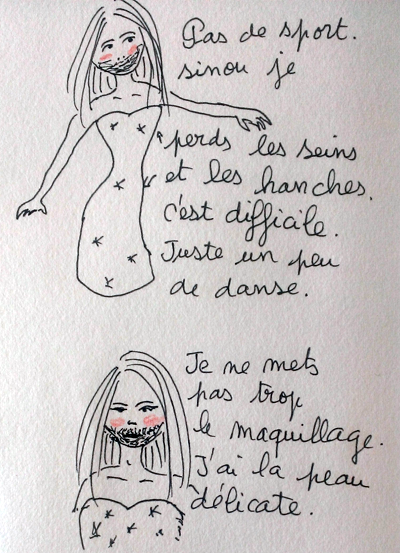 Pas de sport.
sinou je
perds les seins
et les hanches.
c'est difficile.
Juste un peu
de danse.
Je ne mets
pas trop
le maquillage.
J'ai la peau
délicate.